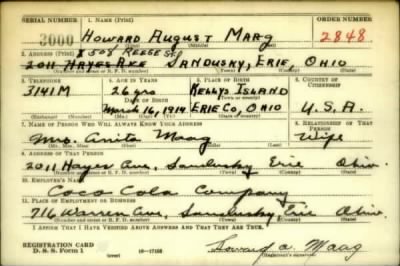 SERIAL NUMBER 1. NAME (Print) ORDER NUMBER
3000 HOWARD AUGUST MAAG 2848
(First) (Middle) (Last)
2. ADDRESS (Print) 508 REESE ST
2011 HAYES AVE SANDUSKY, ERIE, OHIO
(Number and street or R. F. D. number) (Town) (County) (State)
3. TELEPHONE 4. AGE IN YEARS 5. PLACE OF BIRTH 6. COUNTRY OF CITIZENSHIP
3141M 26 yrs KELLYS ISLAND
DATE OF BIRTH (Town or county)
March 16, 1914 ERIE CO, OHIO U.S.A.
(Exchange) (Number) (Mo.) (Day) (Yr.) (State or country)
7. NAME OF PERSON WHO WILL ALWAYS KNOW YOUR ADDRESS 8. RELATIONSHIP OF THAT PERSON
Mrs Anita Maag Wife
(Mr., Mrs., Miss) (First) (Middle) (Last)
9. ADDRESS OF THAT PERSON
2011 Hayes Ave, Sandusky Erie Ohio
(Number and street or R. F. D. number) (Town) (County) (State)
10. EMPLOYER'S NAME
Coco Cola Company
11. PLACE OF EMPLOYMENT OR BUSINESS
716 Warren Ave, Sandusky Erie Ohio
(Number and street or R. F. D. number) (Town) (County) (State)
I AFFIRM THAT I HAVE VERIFIED ABOVE ANSWERS AND THAT THEY ARE TRUE.
REGISTRATION CARD
D. S. S. Form 1 16—17105 Howard A. Maag
(over) (Registrant's signature)